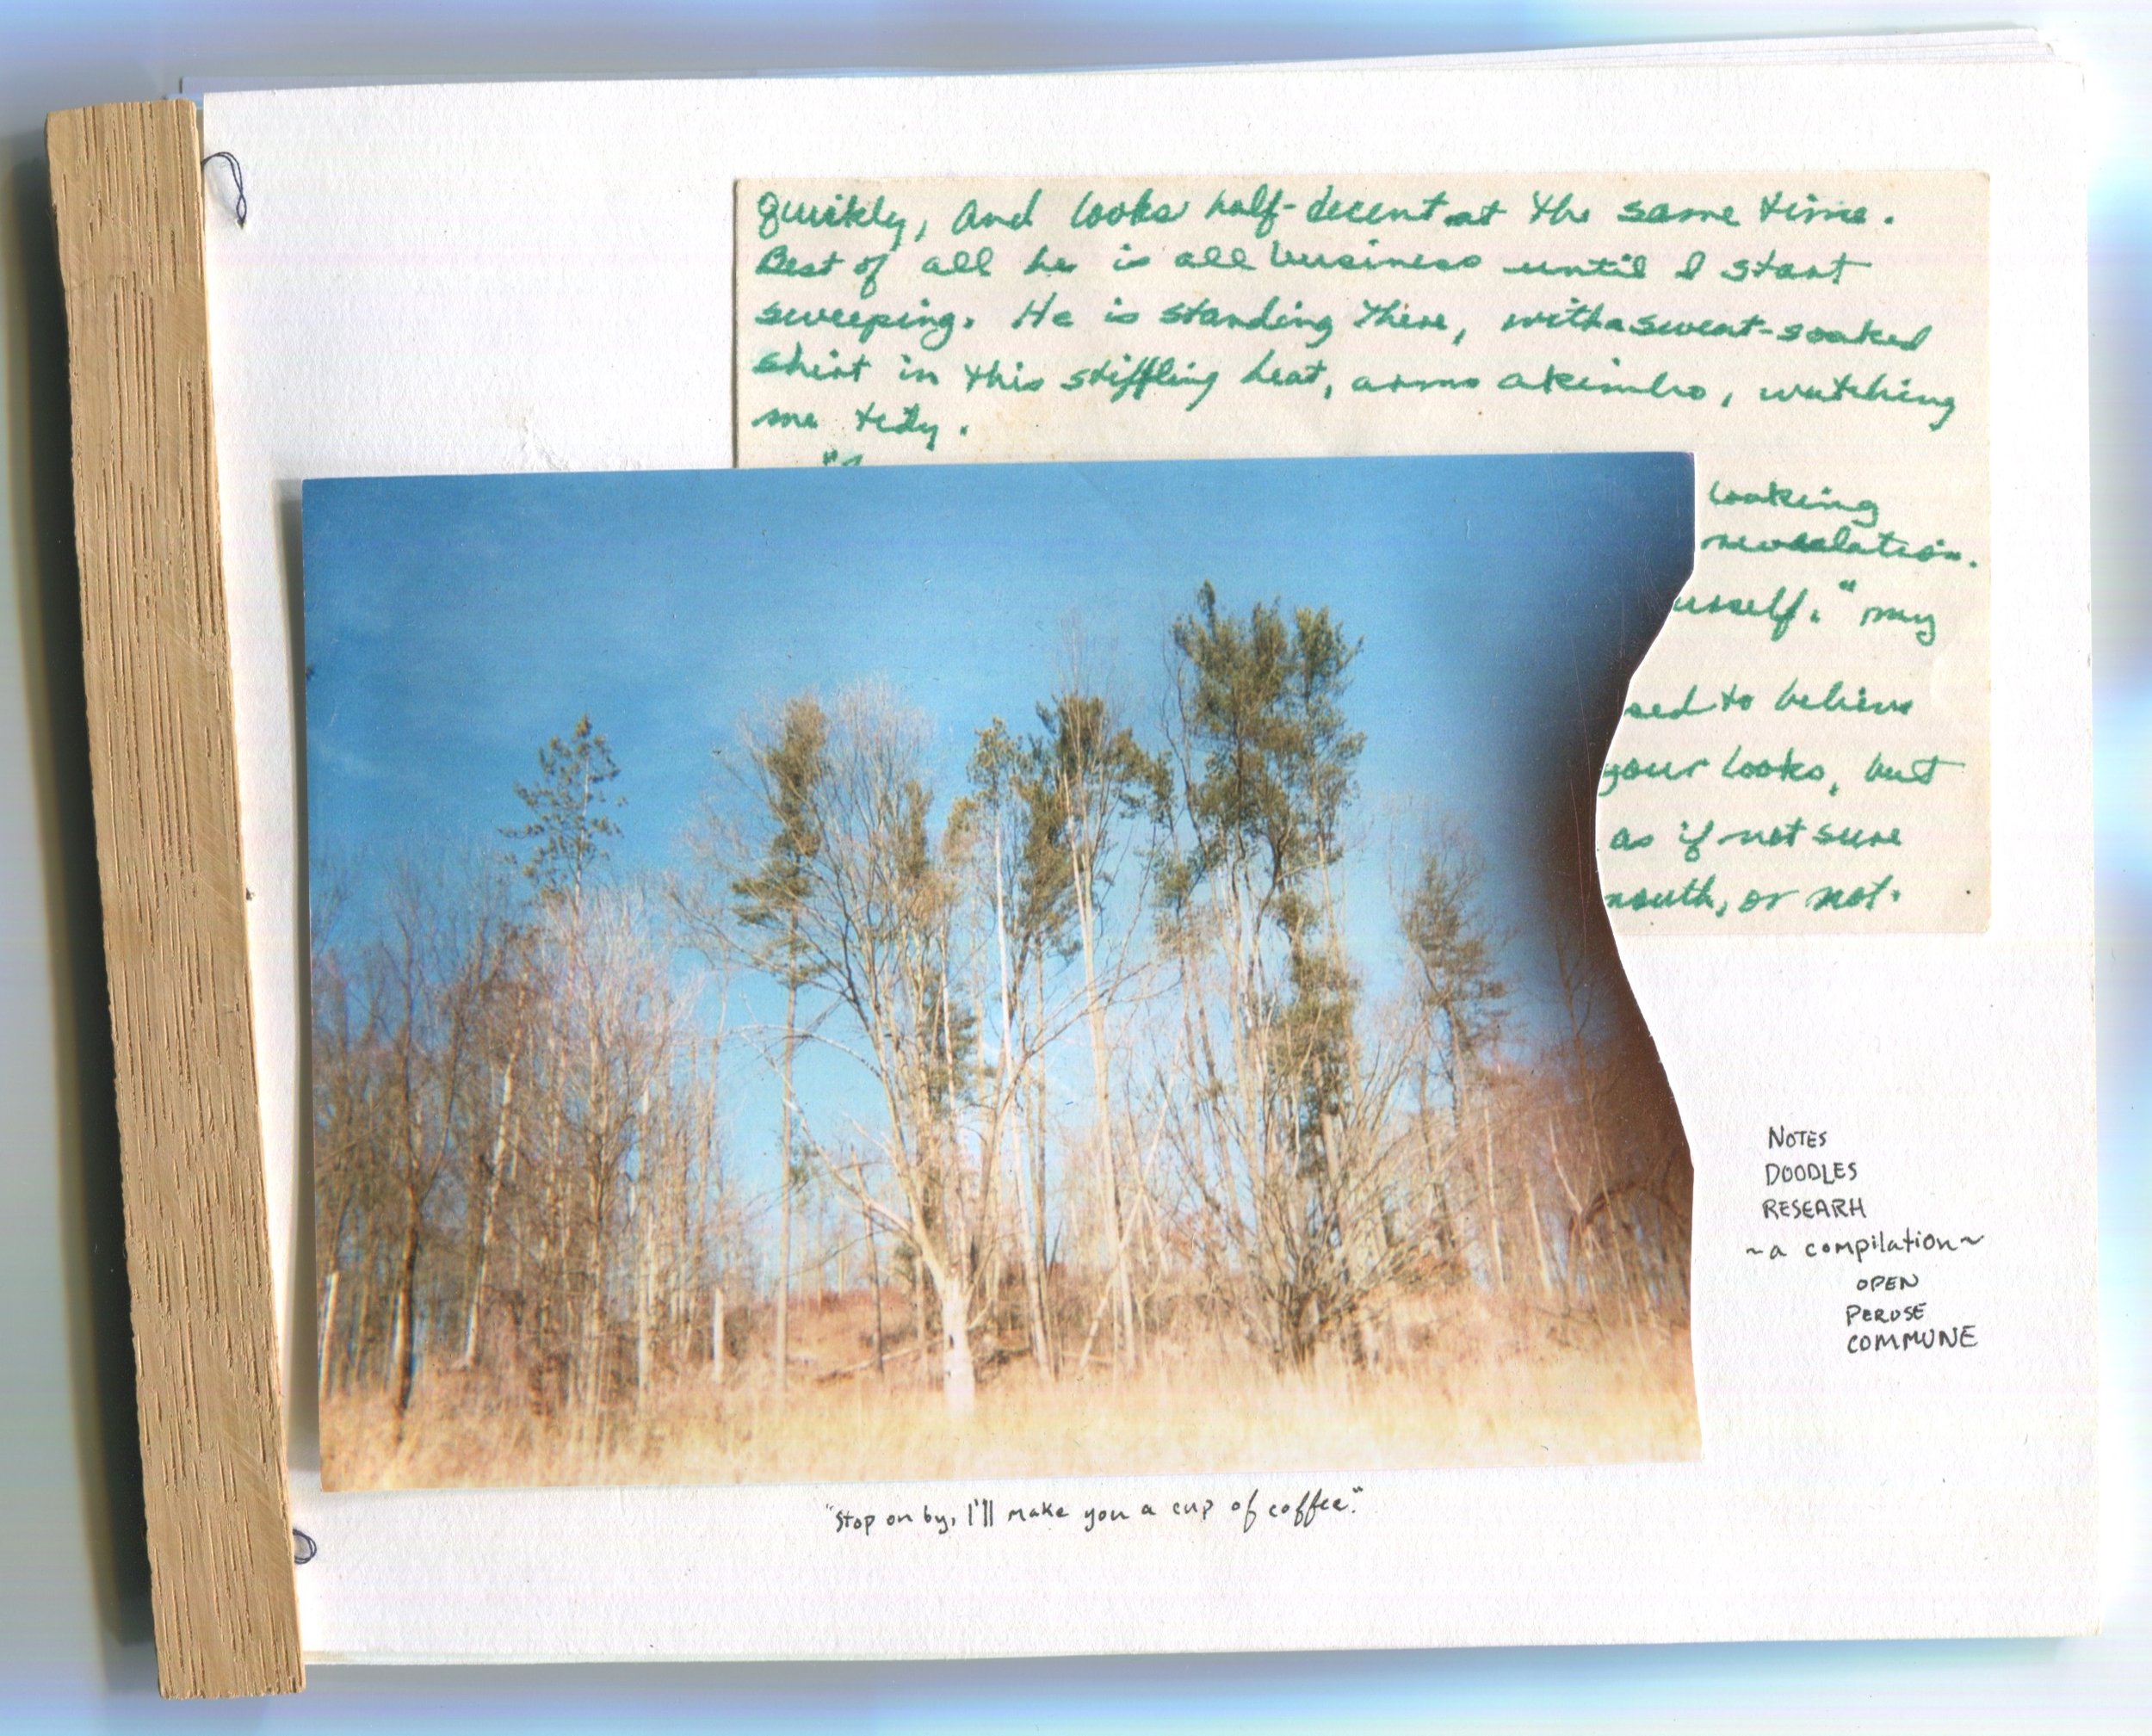 quickly, and looks half-decent at the same time.
Best of all he is all business until I start
sweeping. He is standing there, with a sweat-soaked
shirt in this stiffling heat, arms akimbo, watching
me tidy.
looking
urself." my
sed to believe
your looks, but
as if not sure
mouth, or not.
NOTES
DOODLES
RESEARH
~a compilation~
OPEN
PERUSE
COMMUNE
"Stop on by, I'll make you a cup of coffee."